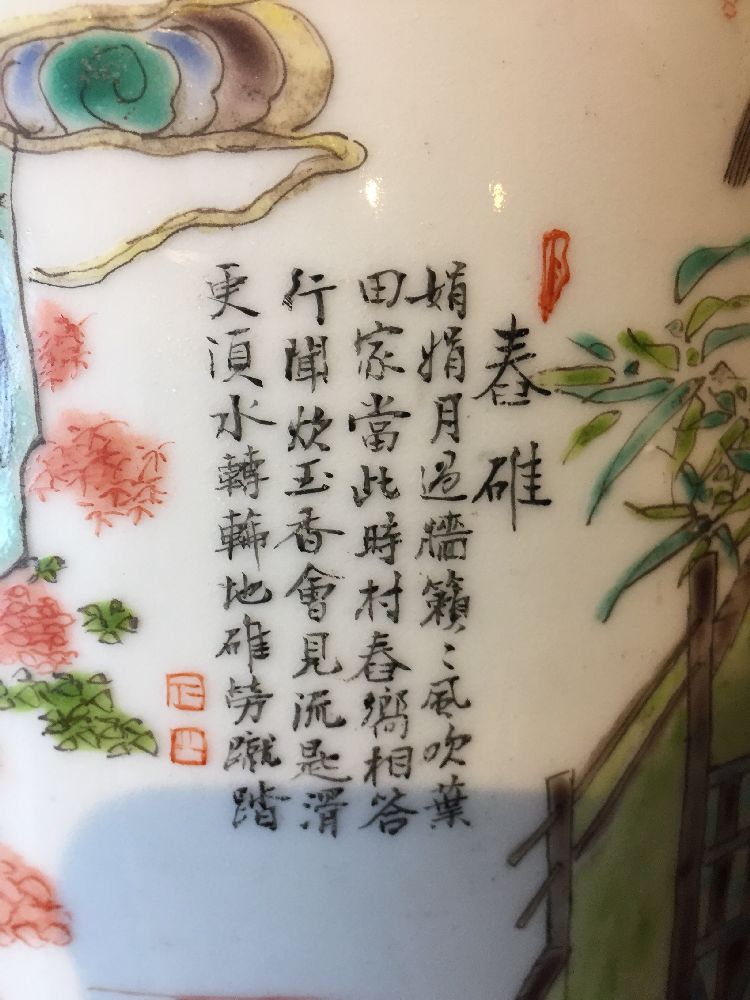 舂碓
娟娟月過牆籟〻風吹葉
田家當此時村舂嚮相答
行聞炊玉香會見流匙滑
更湏水轉輪地碓勞蹴踏